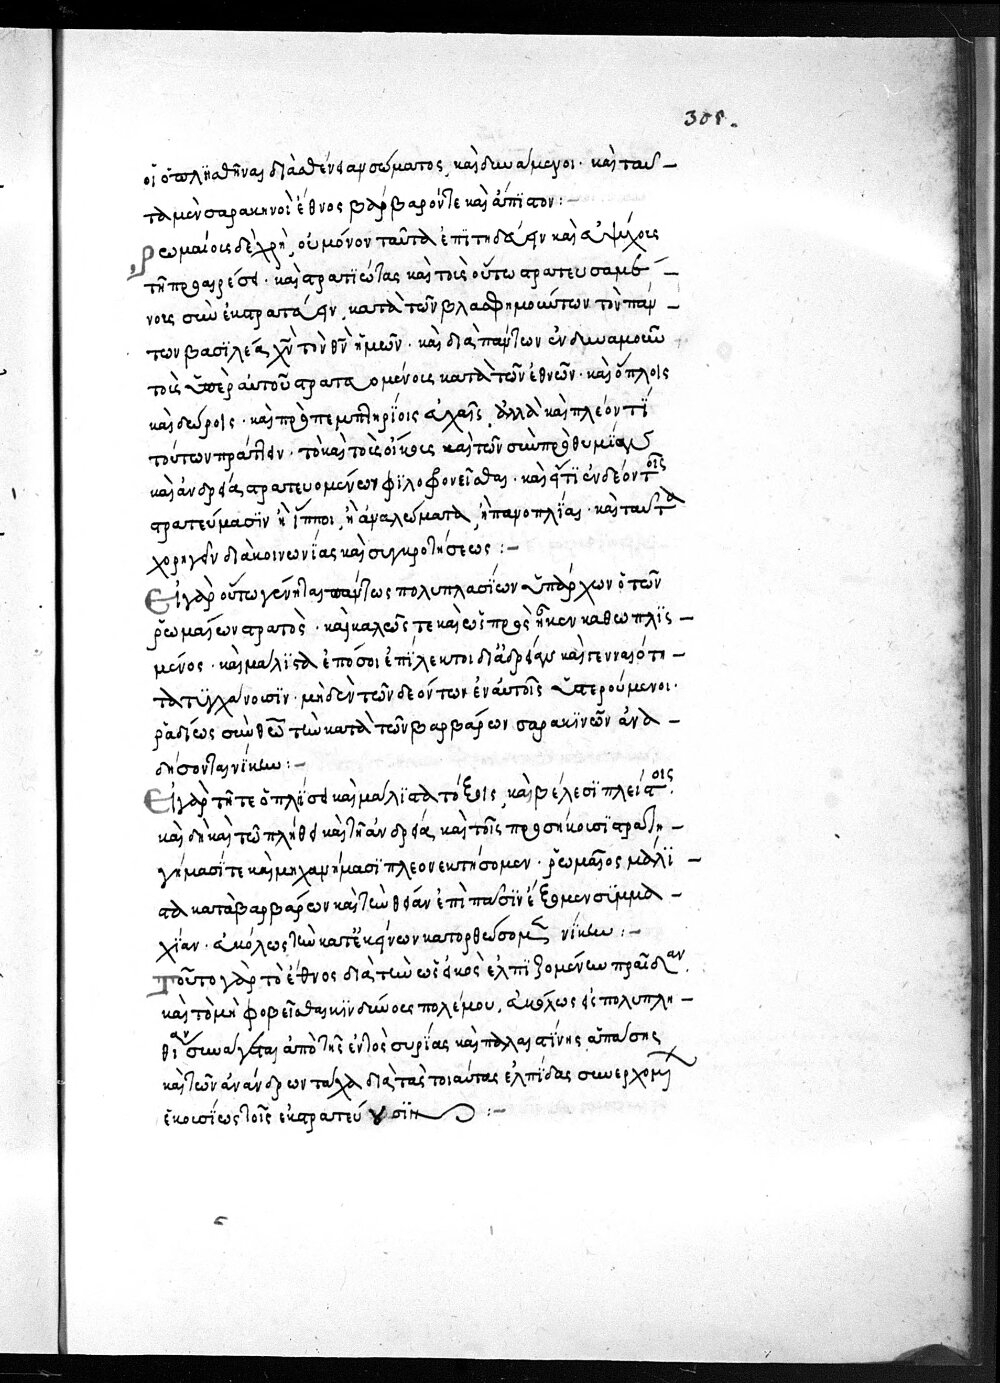 308.
οἱ ὁπλισθῆναι διὰ ἀσθένειαν σώματος καὶ δυνάμενοι· καὶ ταῦ –
τα μὲν σαρακηνοὶ ἔθνος βάρβαρόν τε καὶ ἄπιστον : –
Ρωμαίοις δὲ χρὴ, οὐ μόνον ταῦτα ἐπιτηδεύειν καὶ εὐψύχοις
τῇ προαιρέσει· καὶ στρατιώτας καὶ τοὺς οὔπω στρατευσαμέ –
νοις συνεκστρατεύειν, κατὰ τῶν βλασφημούντων τὸν πάν –
των βασιλέα χν τὸν θν ἡμῶν· καὶ διὰ πάντων ἐνδυναμοῦν
τοὺς ὑπὲρ αὐτοῦ στρατευομένοις κατὰ τῶν ἐθνῶν· καὶ ὅπλοις
καὶ δώροις· καὶ προπεμπτηρίοις εὐχαῖς, ἀλλὰ καὶ πλέον τι
τούτων πράττειν· τὸ καὶ τοὺς οἴκους καὶ τῶν σὺν προθυμίᾳ
καὶ ἀνδρείᾳ στρατευομένων φιλοφρονεῖσθαι· καὶ εἴ τι ἐνδέον τοῖς
στρατεύμασιν ἢ ἵπποι, ἢ ἀναλώματα, ἢ πανοπλίαι· καὶ ταῦτα
χορηγεῖν διὰ κοινωνίας καὶ συγκροτήσεως : –
Εἰ γὰρ οὕτω γένηται πάντως πολυπλασίων ὑπάρχων ὁ τῶν
ῥωμαίων στρατὸς· καὶ καλῶς τε καὶ ὡς προσῆκεν καθωπλισ –
μένος· καὶ μάλιστα ἐπόσοι ἐπίλεκτοι δι' ἀνδρείαν καὶ γενναιότη –
τα τυγχάνουσιν· μηδὲν τῶν δεόντων ἐν αὐτοῖς ὑστερούμενοι·
ῥαδίως σὺν θεῷ τὴν κατὰ τῶν βαρβάρων σαρακινῶν ἀνα –
δήσονται νίκην : –
Εἰ γὰρ τῇ τε ὁπλίσει καὶ μάλιστα τόξοις, καὶ βέλεσι πλείστοις.
καὶ δὴ καὶ τῷ πλήθει καὶ τῇ ἀνδρείᾳ, καὶ τοῖς προσήκουσι στρατη –
γήμασί τε καὶ μηχανήμασι πλεονεκτήσομεν· ῥωμαῖος μάλι –
στα κατὰ βαρβάρων καὶ τὴν θείαν ἐπὶ πᾶσιν ἕξομεν συμμα –
χίαν· εὐκόλως τὴν κατ' ἐκείνων κατορθώσομεν νίκην : –
Τοῦτο γὰρ τὸ ἔθνος διὰ τὴν ὡς εἰκὸς ἐλπιζομένην πραῖδαν.
καὶ τὸ μὴ φοβεῖσθαι κινδύνους πολέμου, εὐκόλως εἰς πολυπλη –
θίαν συνάγεται ἀπὸ τῆς ἐντὸς συρίας καὶ παλαιστίνης ἁπάσης
καὶ τῶν ἀνάνδρων τάχα διὰ τὰς τοιαύτας ἐλπίδας συνερχομένων
ἑκουσίως τοῖς ἐκστρατεύουσιν : –